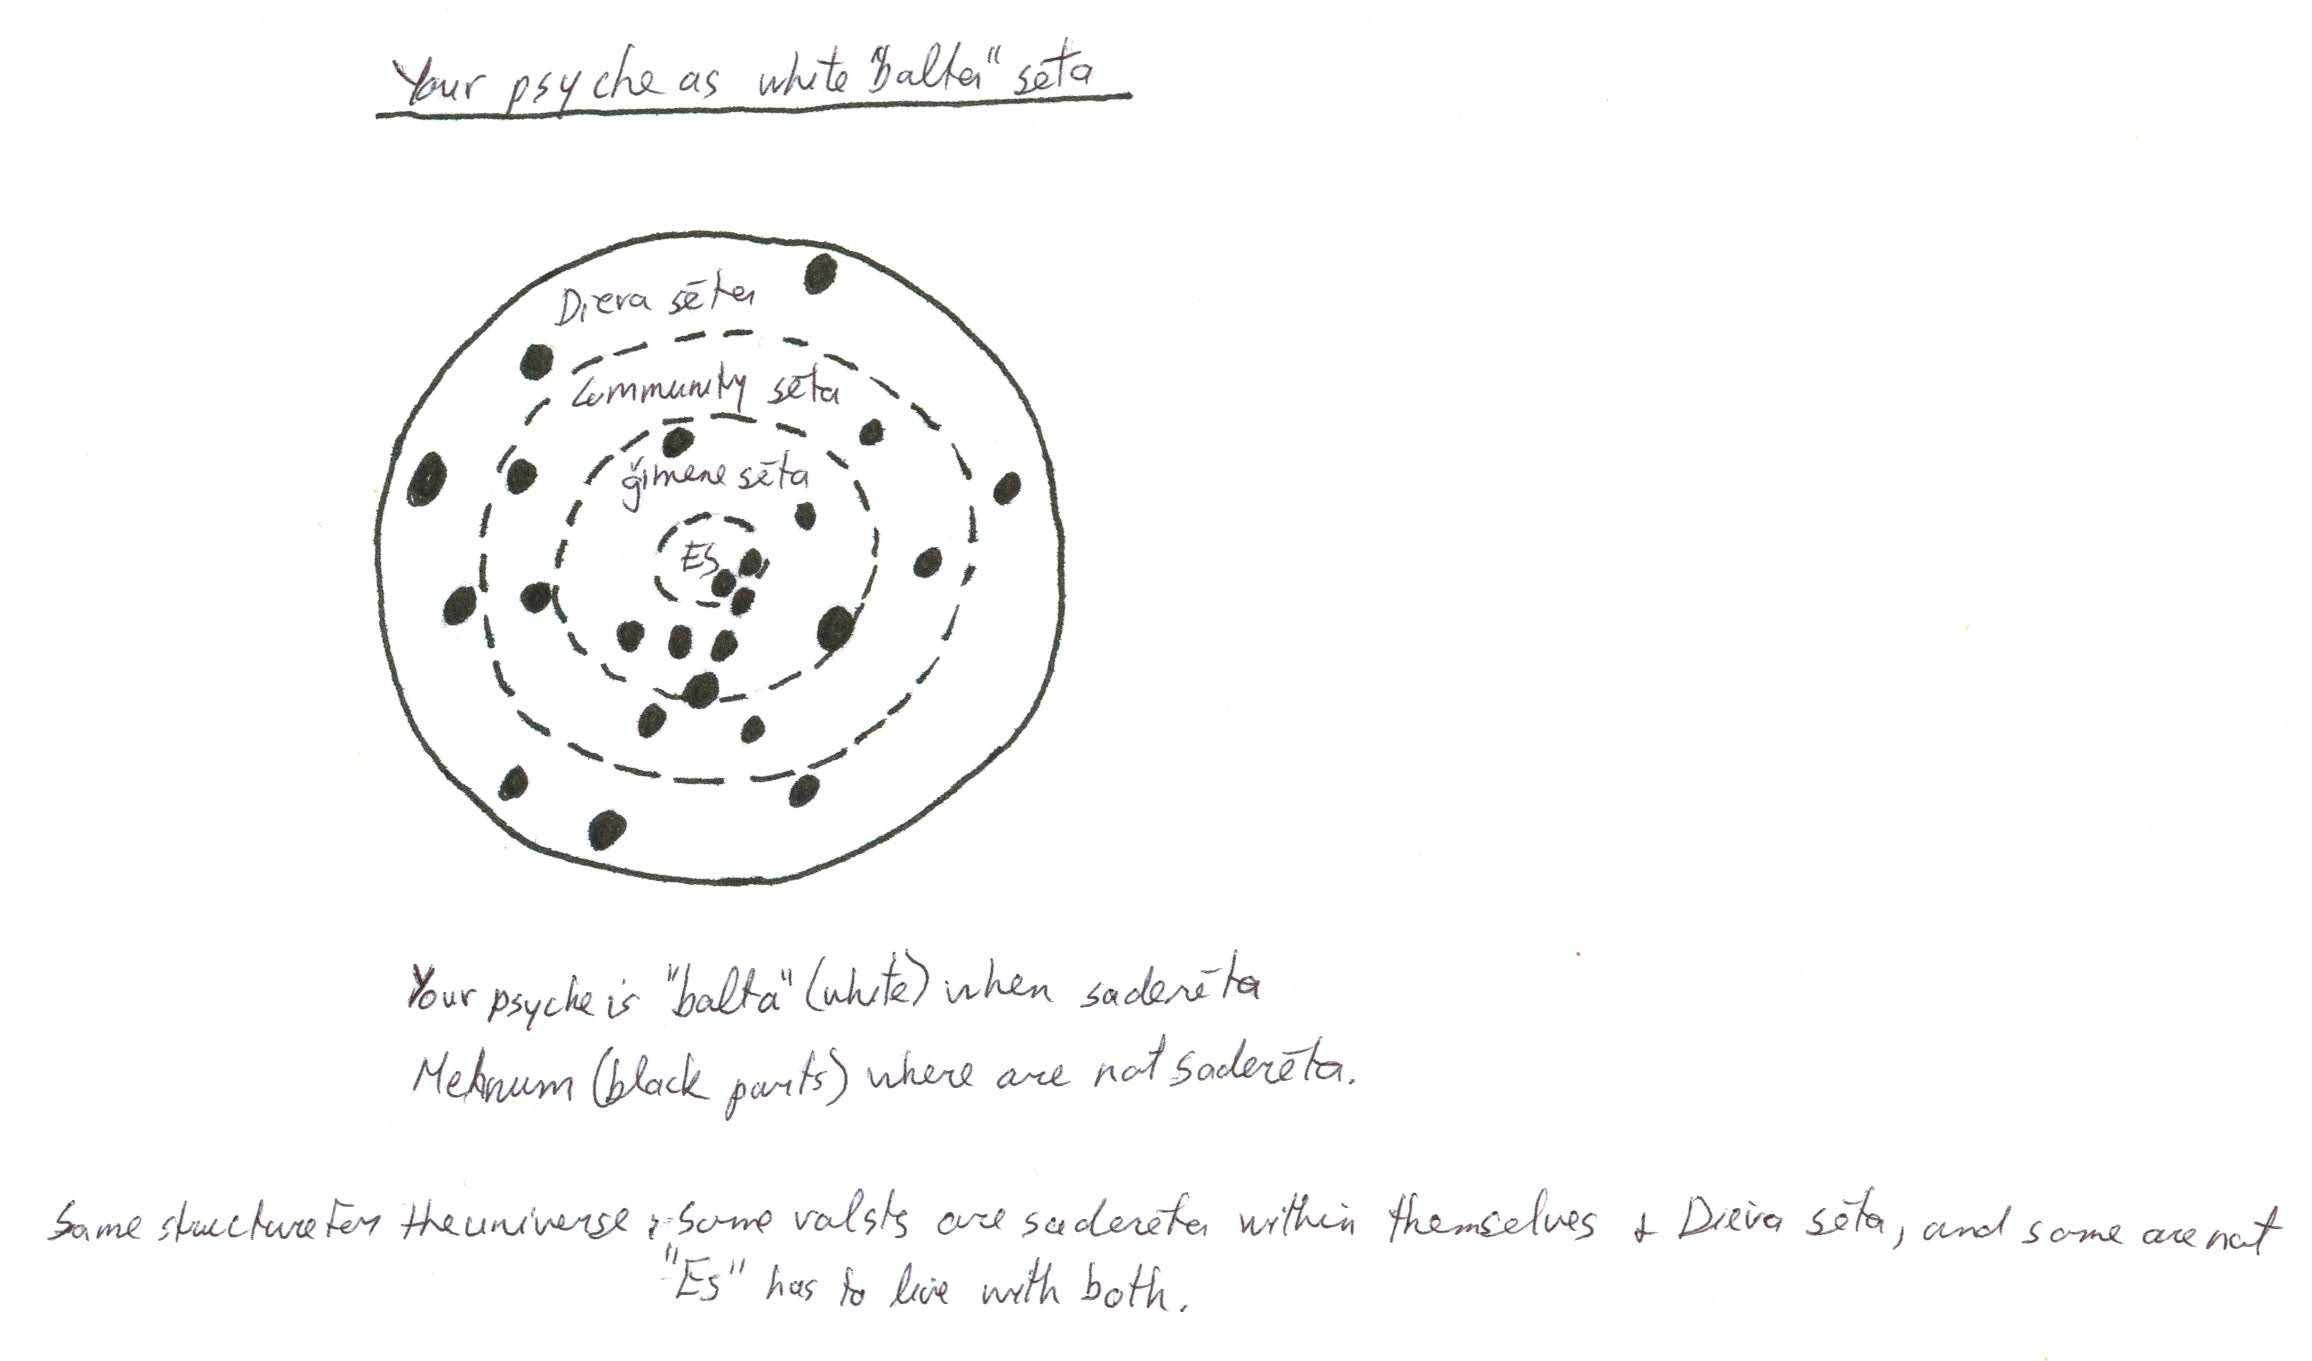 Your psyche as white "balta" sēta
Dieva sēta
Community sēta
ģimene sēta
ES
Your psyche is "balta" (white) when saderēta
Melnum (black parts) where are not saderēta.
Same structure for the universe; some valsts are saderēta within themselves + Dieva sēta, and some are not
"Es" has to live with both.